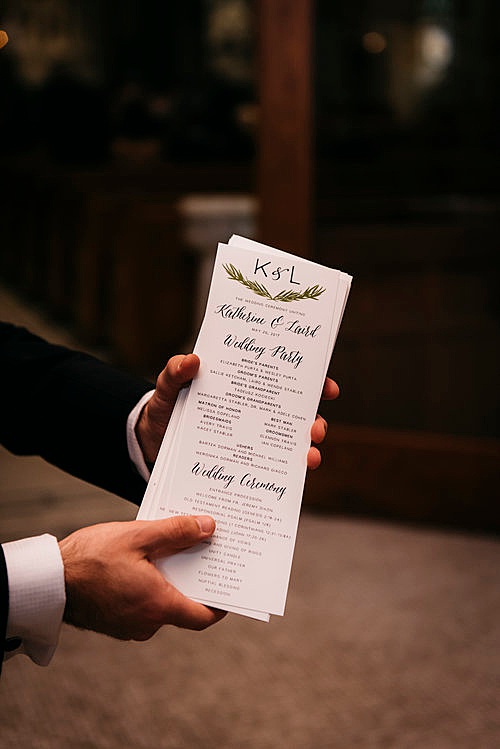 K & L
THE WEDDING CEREMONY UNITING
Katherine & Laird
MAY 20, 2017
Wedding Party
BRIDE'S PARENTS
ELIZABETH PURTA & WESLEY PURTA
GROOM'S PARENTS
SALLIE KETCHAM, LAIRD & WENDE STABLER
BRIDE'S GRANDPARENT
TADEUSZ KODESKI
GROOM'S GRANDPARENTS
MARGARETTA STABLER, DR. MARK & ADELE COHEN
MATRON OF HONOR
MELISSA COPELAND
BRIDESMAIDS
AVERY TRAVIS
KACEY STABLER
BEST MAN
MARK STABLER
GROOMSMEN
GLENNON TRAVIS
IAN COPELAND
USHERS
BARTEK DORMAN AND MICHAEL WILLIAMS
READERS
WERONIKA DORMAN AND RICHARD GIACCO
Wedding Ceremony
ENTRANCE PROCESSION
WELCOME FROM FR. JEREMY DIXON
OLD TESTAMENT READING (GENESIS 2:18-24)
RESPONSORIAL PSALM (PSALM 128)
NEW (1 CORINTHIANS 12:31-13:8A)
READING (JOHN 17:20-26)
OF VOWS
AND GIVING OF RINGS
UNITY CANDLE
UNIVERSAL PRAYER
OUR FATHER
FLOWERS TO MARY
NUPTIAL BLESSING
RECESSION